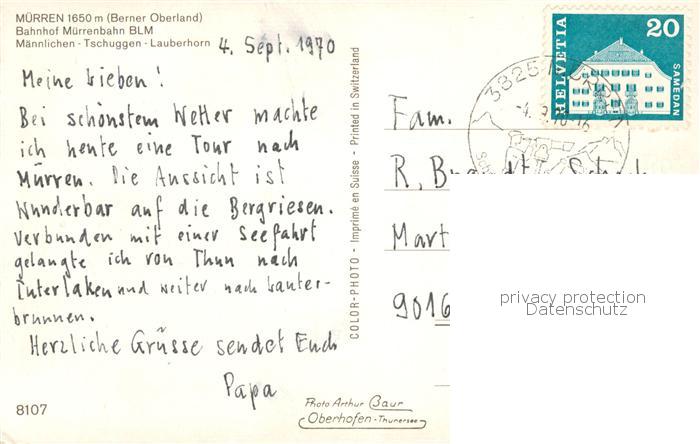 MÜRREN 1650 m (Berner Oberland)
Bahnhof Mürrenbahn BLM
Männlichen - Tschuggen - Lauberhorn
4. Sept. 1970
Meine Lieben!
Bei schönstem Wetter machte
ich heute eine Tour nach
Mürren. Die Aussicht ist
Wunderbar auf die Bergriesen.
Verbunden mit einer Seefahrt
gelangte ich von Thun nach
Interlaken und weiter nach Lauter-
brunnen.
Herzliche Grüsse sendet Euch
Papa
8107
COLOR-PHOTO - Imprimé en Suisse - Printed in Switzerland
Photo Arthur Baur
Oberhofen - Thunersee
HELVETIA
20
SAMEDAN
3825 MÜRREN
Fam.
R.
Mart
9016
privacy protection
Datenschutz